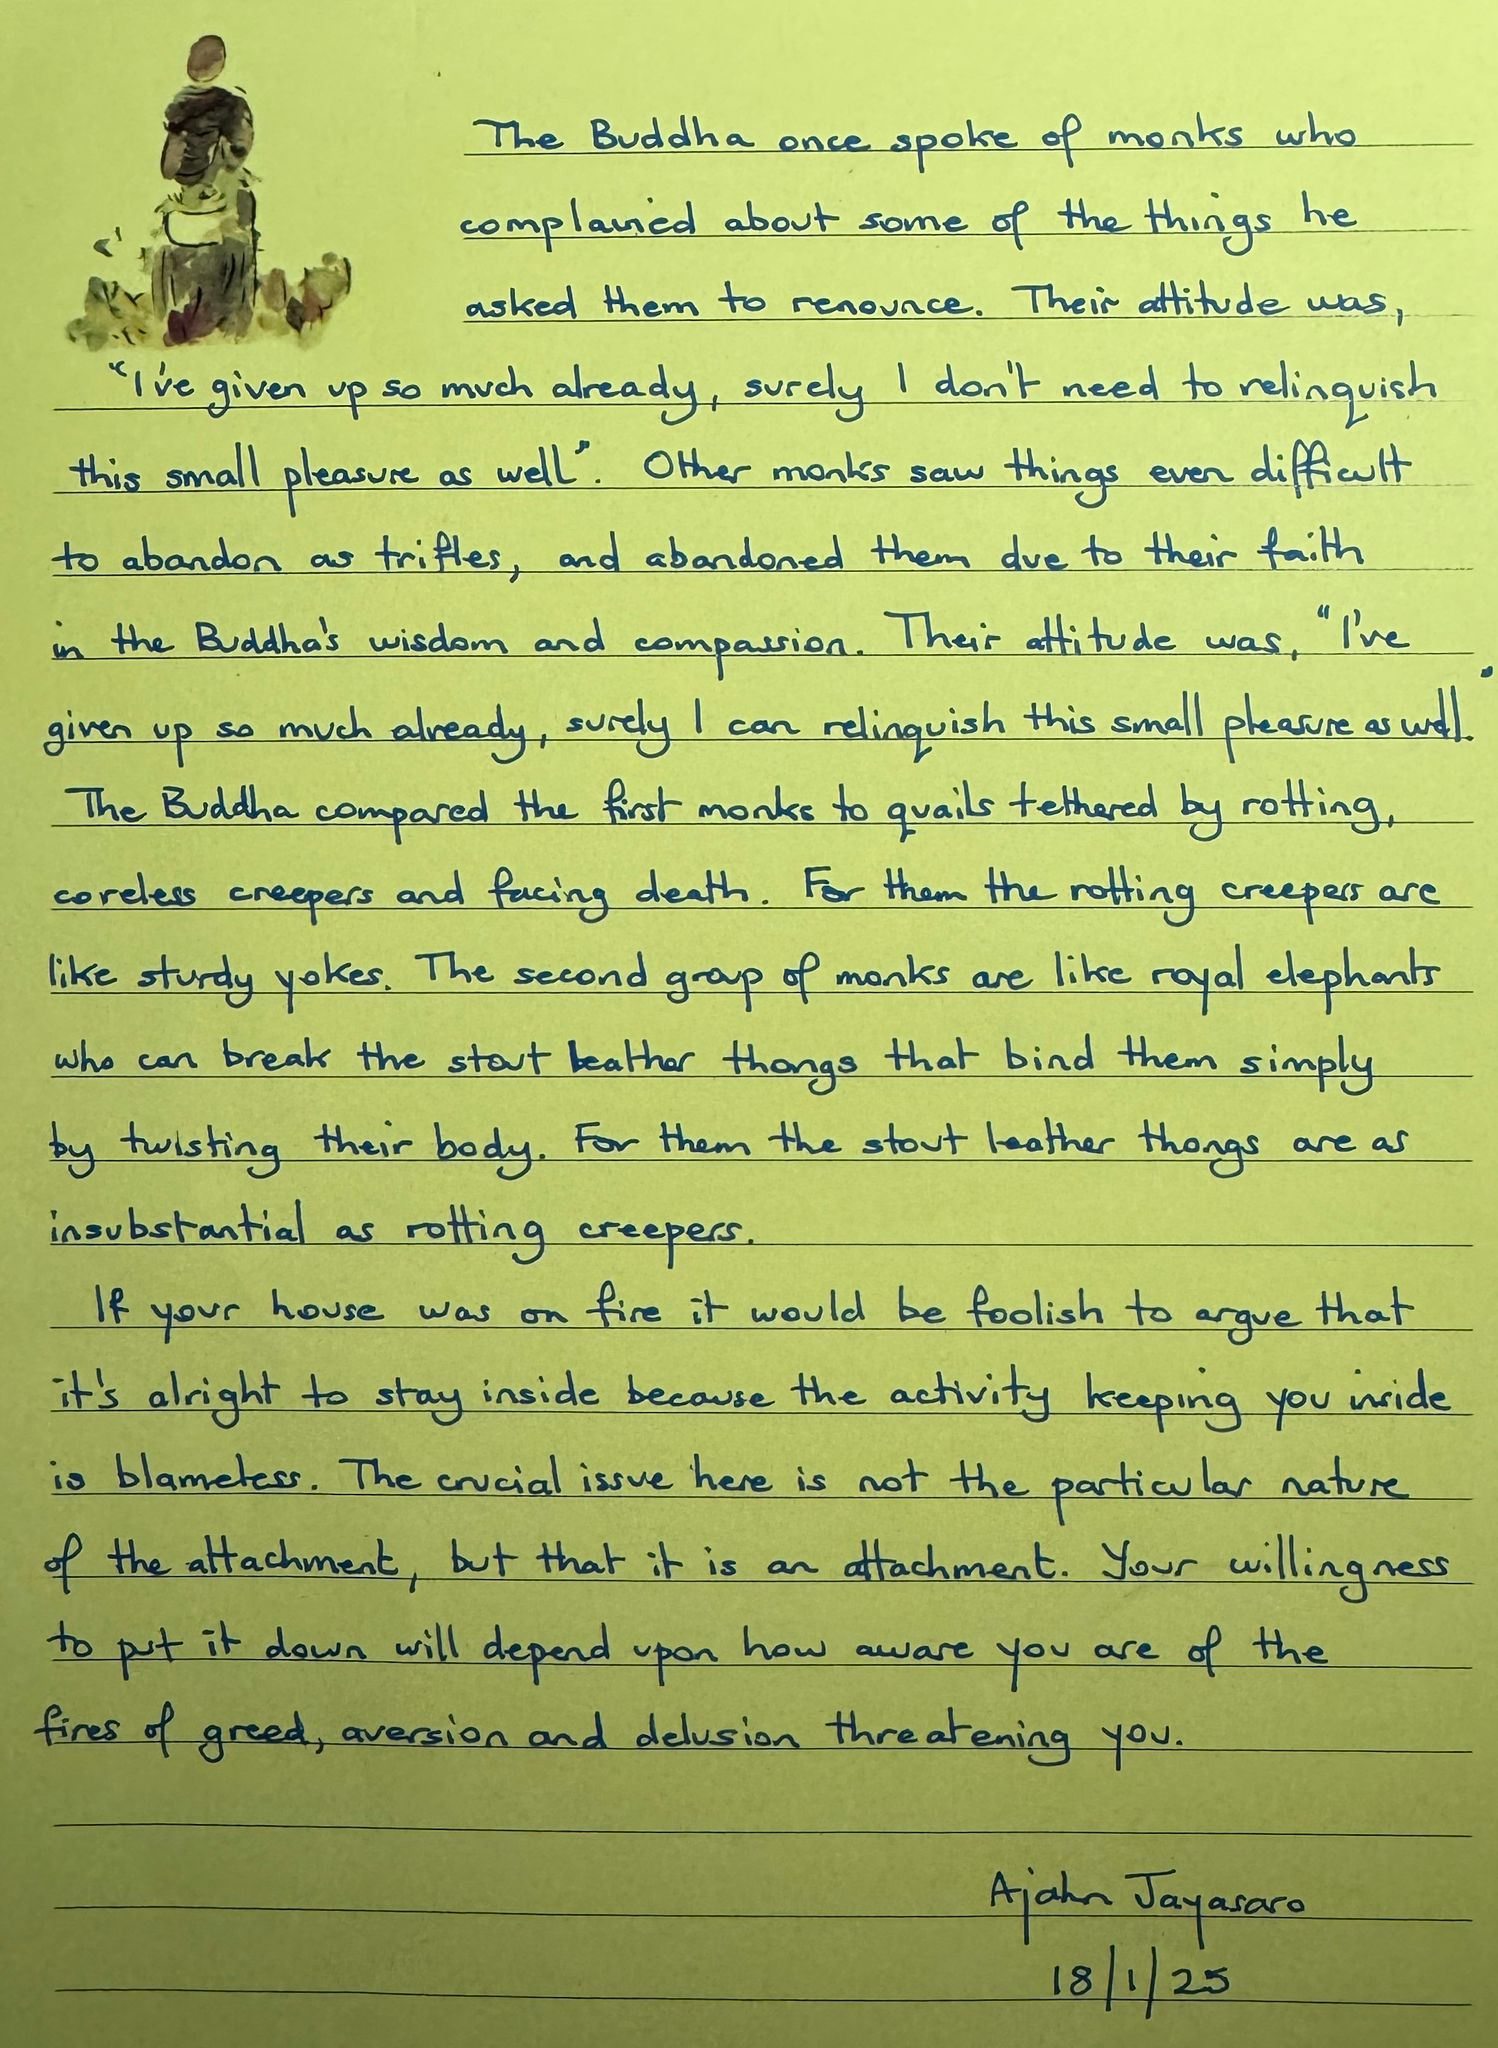 The Buddha once spoke of monks who
complained about some of the things he
asked them to renounce. Their attitude was,
"I've given up so much already, surely I don't need to relinquish
this small pleasure as well". Other monks saw things even difficult
to abandon as trifles, and abandoned them due to their faith
in the Buddha's wisdom and compassion. Their attitude was, "I've
given up so much already, surely I can relinquish this small pleasure as well."
The Buddha compared the first monks to quails tethered by rotting,
coreless creepers and facing death. For them the rotting creepers are
like sturdy yokes. The second group of monks are like royal elephants
who can break the stout leather thongs that bind them simply
by twisting their body. For them the stout leather thongs are as
insubstantial as rotting creepers.
If your house was on fire it would be foolish to argue that
it's alright to stay inside because the activity keeping you inside
is blameless. The crucial issue here is not the particular nature
of the attachment, but that it is an attachment. Your willingness
to put it down will depend upon how aware you are of the
fires of greed, aversion and delusion threatening you.
Ajahn Jayasaro
18/1/25